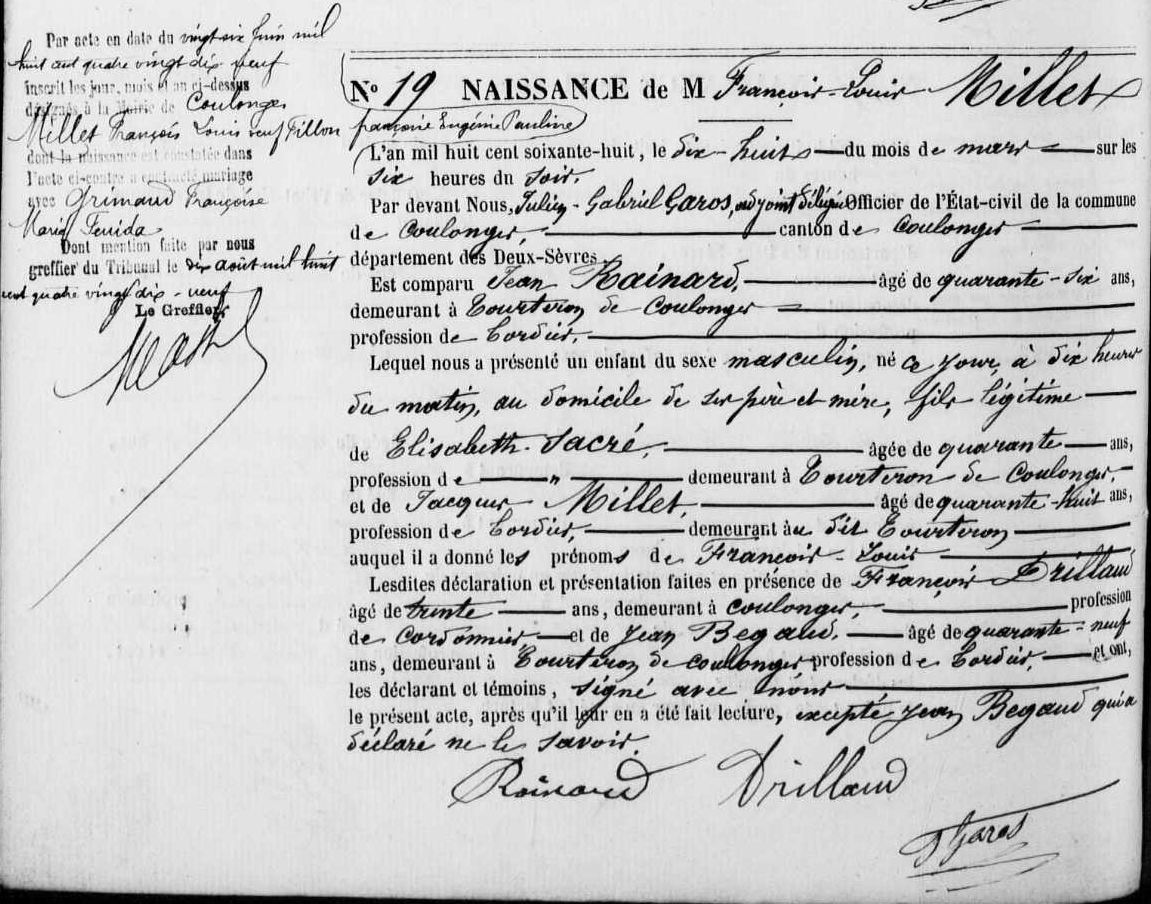 Par acte en date du vingt six Juin mil
huit cent quatre vingt dix neuf
inscrit les jour, mois et an ci-dessus
désignés à la Mairie de Coulonges
Millet François Louis veuf Fillon
françoise Eugénie Pauline
dont la naissance est constatée dans
l'acte ci-contre a contracté mariage
avec Grimaud Françoise
Maria
Dont mention faite par nous
greffier du Tribunal le dix août mil huit
cent quatre vingt dix-neuf
Le Greffier,
No 19 NAISSANCE de M François-Louis Millet
L'an mil huit cent soixante-huit, le dix-huit du mois de mars sur les
six heures du soir.
Par devant Nous, Julien-Gabriel Garos, adjoint délégué Officier de l'État-civil de la commune
de Coulonges, canton de Coulonges
département des Deux-Sèvres
Est comparu Jean Rainard, âgé de quarante-six ans,
demeurant à Tourteron de Coulonges
profession de Cordier,
Lequel nous a présenté un enfant du sexe masculin, né ce jour, à dix heures
du matin, au domicile de ses père et mère, fils légitime
de Elisabeth Sacré, âgée de quarante ans,
profession de " demeurant à Tourteron de Coulonges,
et de Jacques Millet, âgé de quarante-huit ans,
profession de Cordier, demeurant au dit Tourteron
auquel il a donné les prénoms de François-Louis
Lesdites déclaration et présentation faites en présence de François Drillaud
âgé de trente ans, demeurant à Coulonges, profession
de Cordonnier et de Jean Begaud, âgé de quarante-neuf
ans, demeurant à Tourteron de Coulonges profession de Cordier, et ont,
les déclarant et témoins, signé avec nous
le présent acte, après qu'il leur en a été fait lecture, excepté Jean Begaud qui a
déclaré ne le savoir.
Rainard Drillaud
J Garos